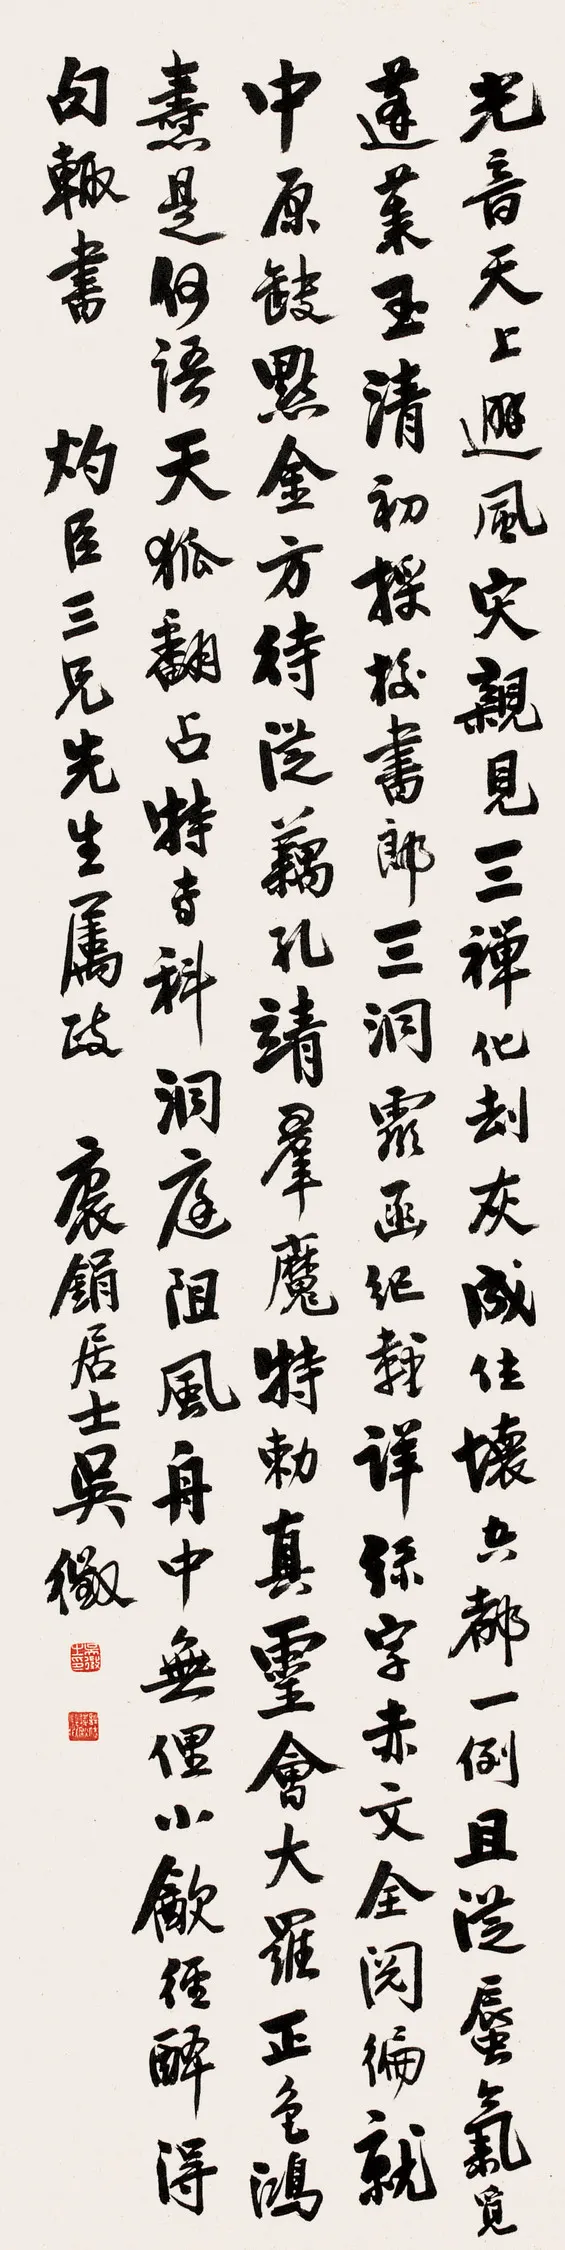 光音天上避風灾親見三禪化刦灰成住壞空都一例且從蜃氣覓
蓬萊玉清初擢校書郎三洞靈函紀載詳綠字赤文全閱徧就
中原缺點金方待從藕孔靖羣魔特勅真靈會大羅正色鴻
燾是何語天狐翻占特奇科洞庭阻風舟中無俚小飲徑醉得
句輒書 灼臣三兄先生属政 褱鋗居士吳徵